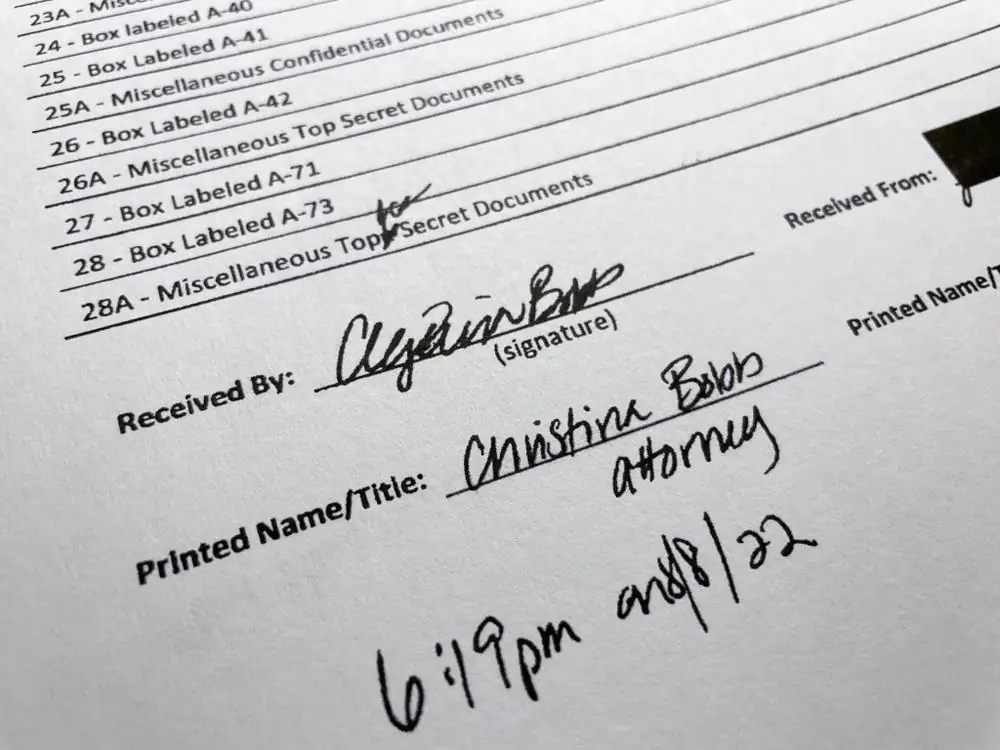 23A - Misc
24 - Box labeled A-40
25 - Box Labeled A-41
25A - Miscellaneous Confidential Documents
26 - Box Labeled A-42
26A - Miscellaneous Top Secret Documents
27 - Box Labeled A-71
28 - Box Labeled A-73
28A - Miscellaneous Top Secret Documents
Received By:
(signature)
Received From:
Printed Name/Title: Christina Bobb
attorney
Printed Name/T
6:19pm on 8/8/22